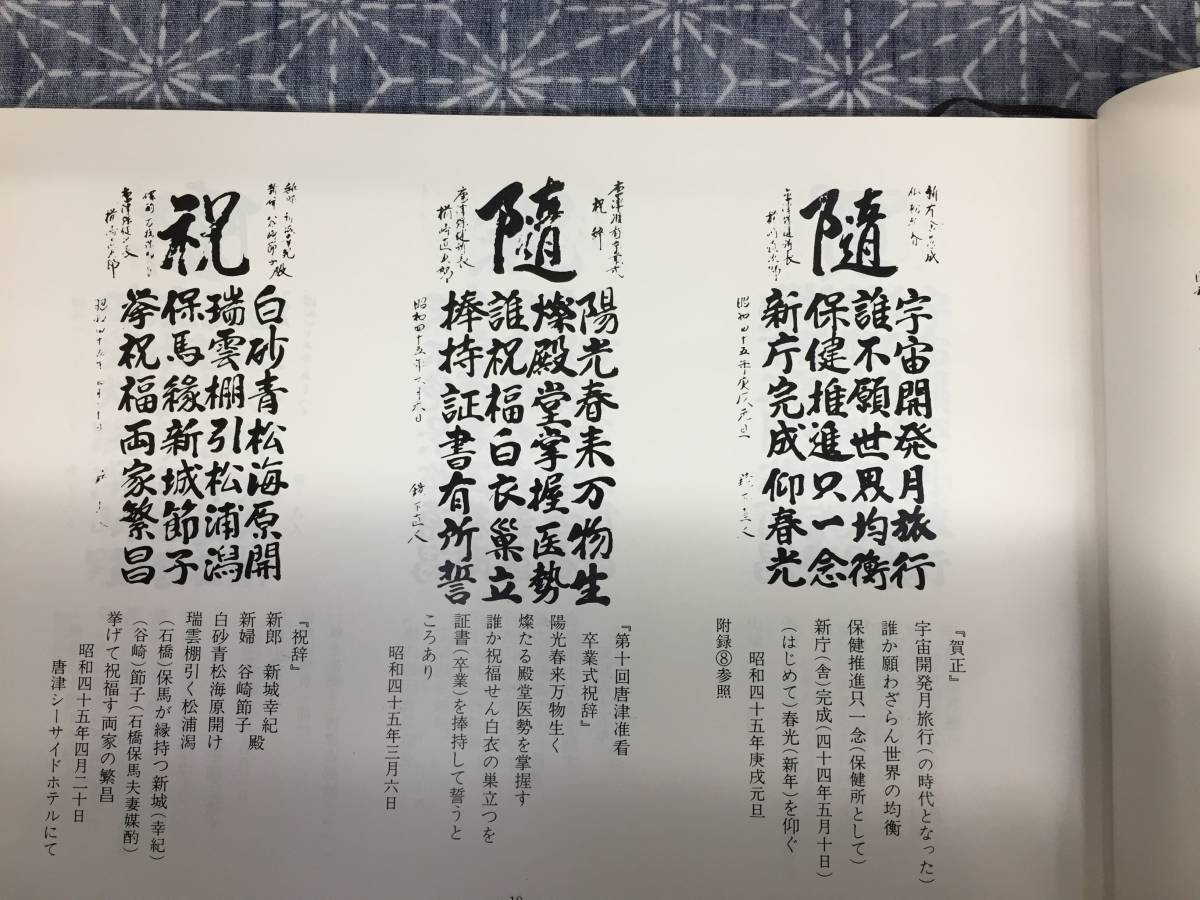 隨
宇宙開発月旅行
誰不願世界均衡
保健推進只一念
新庁完成仰春光
昭和四十五年庚戌元旦
『賀正』
宇宙開発月旅行(の時代となった)
誰か願わざらん世界の均衡
保健推進只一念(保健所として)
新庁(舎)完成(四十四年五月十日)
(はじめて)春光(新年)を仰ぐ
昭和四十五年庚戌元旦
附録⑧参照
祝辞
隨
陽光春来万物生
燦殿堂掌握医勢
誰祝福白衣巣立
捧持証書有所誓
『第十回唐津准看
卒業式祝辞』
陽光春来万物生く
燦たる殿堂医勢を掌握す
誰か祝福せん白衣の巣立つを
証書(卒業)を捧持して誓うと
ころあり
昭和四十五年三月六日
祝
白砂青松海原開
瑞雲棚引松浦潟
保馬縁新城節子
挙祝福両家繁昌
『祝辞』
新郎 新城幸紀
新婦 谷崎節子 殿
白砂青松海原開け
瑞雲棚引く松浦潟
(石橋)保馬が縁持つ新城(幸紀)
(谷崎)節子(石橋保馬夫妻媒酌)
挙げて祝福す両家の繁昌
昭和四十五年四月二十日
唐津シーサイドホテルにて